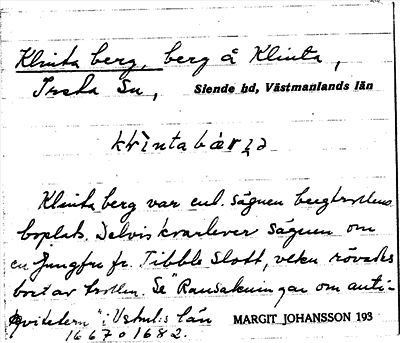 Klinta berg, berg å Klinta,
Irsta Sn, Siende hd, Västmanlands län
Klinta berg var enl. sägnen bergtrollens
boplats. Delvis kvarlever sägnen om
en jungfru fr. Tibble Slott, vilken rövades
bort av trollen. Se "Ransakningar om anti-
kviteterna" i Vstmls län
1667 o 1682. MARGIT JOHANSSON 193